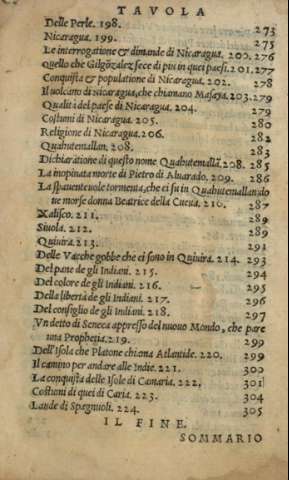 TAVOLA
Delle Perle. 198. 273
Nicaragua. 199. 275
Le interrogatione & dimande di Nicaragua. 200. 276
Quello che Gilgōzalez fece di piu in quei paesi. 201. 277
Conquista & populatione di Nicaragua. 202. 278
Il volcano di Nicaragua, che chiamano Masaya. 203. 279
Qualità del paese di Nicaragua. 204. 279
Costumi di Nicaragua. 205. 280
Religione di Nicaragua. 206. 282
Quahutemallan. 208. 283
Dichiaratione di questo nome Quahutemallā. 208. 285
La inopinata morte di Pietro di Aluarado. 209. 286
La spauenteuole tormenta, che ci fu in Quahutemallan do
ue morse donna Beatrice della Cueua. 210. 287
Xalisco. 211. 289
Siuola. 212. 289
Quiuira. 213. 291
Delle Vacche gobbe che ci sono in Quiuira. 214. 293
Del pane de gli Indiani. 215. 294
Del colore de gli Indiani. 216. 295
Della libertà de gli Indiani. 217. 296
Del consiglio de gli Indiani. 218. 297
Vn detto di Seneca appresso del nuouo Mondo, che pare
una Prophetia. 219. 299
Dell'Isola che Platone chiama Atlantide. 220. 299
Il camino per andare alle Indie. 221. 300
La conquista delle Isole di Camaria. 222, 301
Costumi di quei di Caria. 223. 304
Laude di Spagnuoli. 224. 305
IL FINE.
SOMMARIO